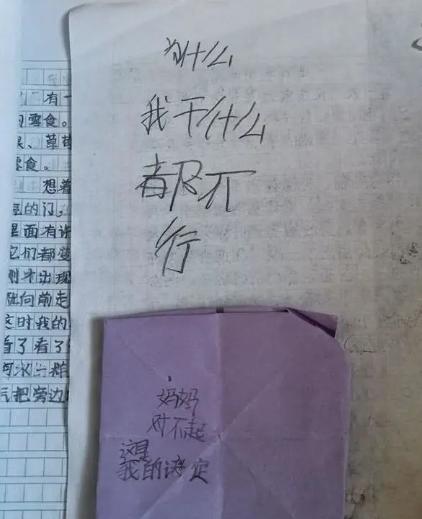 有一
零食。
、草莓
零食。
想着
的门,
里面有许
它们都变
刚才出现
向前走
这时我的
看了看了
把旁边
为什么
我干什么
都不
行
妈妈
对不起
这是
我的决定